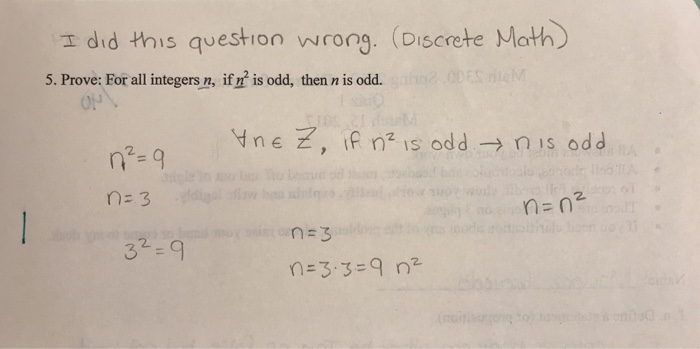 I did this question wrong. (Discrete Math)
5. Prove: For all integers n, if n² is odd, then n is odd.
∀n∈ Z, if n² is odd → n is odd
n²=9
n=3
n=n²
3²=9
n=3
n=3·3=9 n²